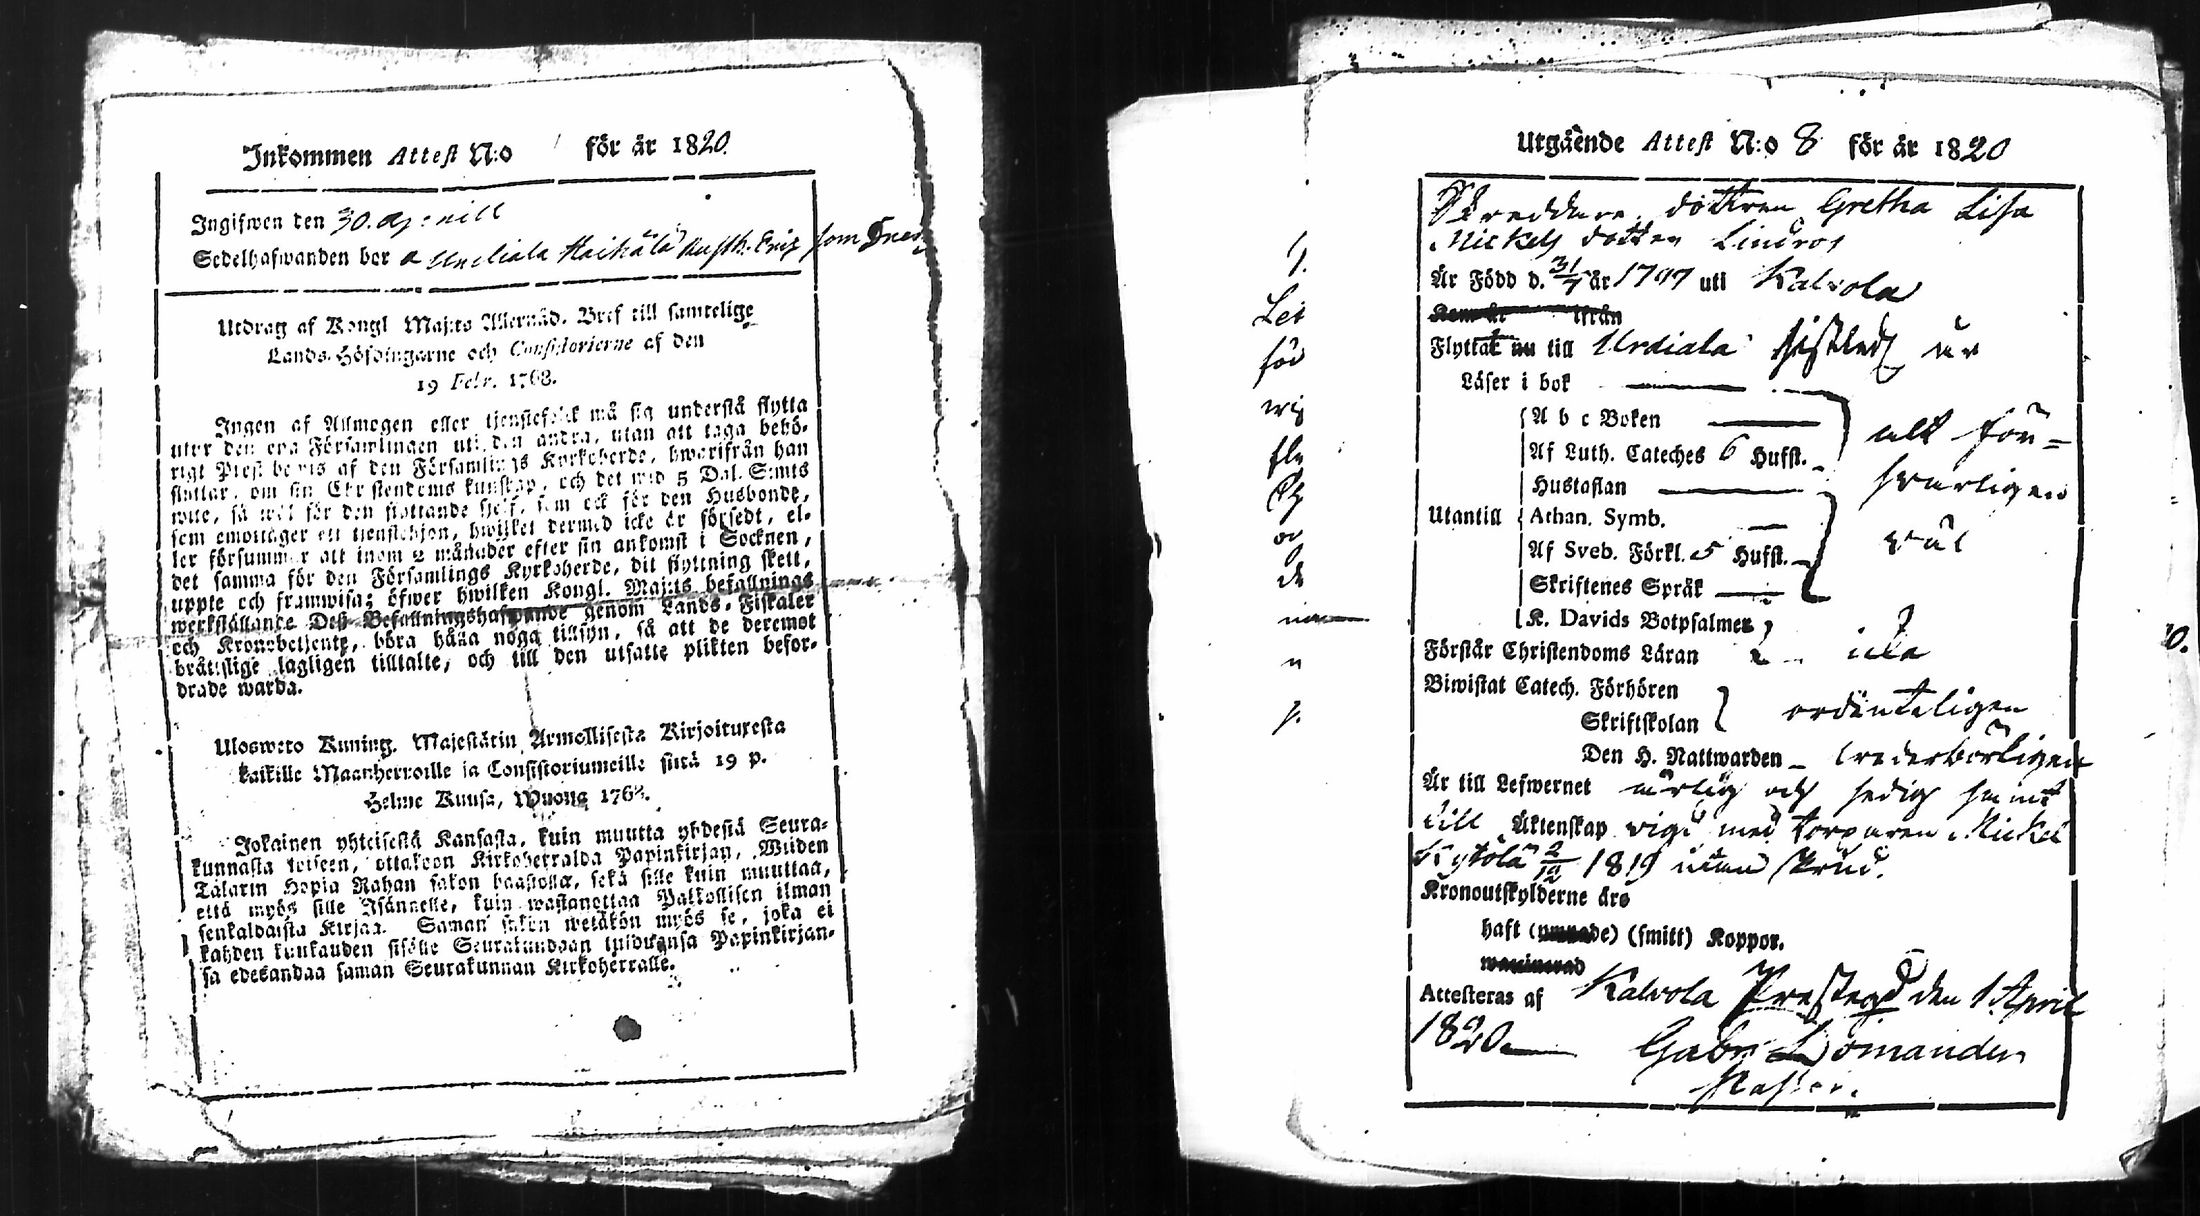 Inkommen Attest N:o för år 1820.
Ingifwen den 30. April
Sedelhafwanden bor a Urdiala Rusth. Eric som
Utdrag af Kongl Maj:ts Allernåd. Bref till samtelige
Lands-Höfdingarne och Consistorierne af den
19 Febr. 1768.
Ingen af Allmogen eller tjenstefolck må sig understå flytta
utur den ena Församlingen uti den andra, utan att taga behö-
rigt Prest bewis af den Församlings Kyrkoherde, hwarifrån han
flyttar, om sin Christendoms kunskap, och det wid 5 Dal. S:mts
wite, så wäl för den flyttande sjelf, som ock för den Husbonde,
som emottager ett tienstehjon, hwilket dermed icke är försedt, el-
ler försummar att inom 2 månader efter sin ankomst i Socknen,
det samma för den Församlings Kyrkoherde, dit flyttning skett,
uppte och framwisa; öfwer hwilken Kongl. Maj:ts befallnings
werkställande Dess Befallningshafwande genom Lands-Fiskaler
och Kronobetjente, böra hålla noga tillsyn, så att de deremot
bråttslige lagligen tilltalte, och till den utsatte plikten befor-
drade warda.
Ulosweto Kuning. Majestätin Armollisesta Kirjoituxesta
kaikille Maanherroille ja Consistoriumeille siitä 19 p.
Helme Kuusa, Wuona 1768.
Jokainen yhteisestä Kansasta, kuin muutta yhdestä Seura-
kunnasta toiseen, ottakoon Kirkoherralda Papinkirjan, Wiiden
Talarin Hopia Rahan sakon haastolla, sekä sille kuin muuttaa,
että myös sille Isännelle, kuin wastanottaa Palkollisen ilman
senkaldaista Kirjaa. Saman sakon wetäkön myös se, joka ei
kahden kuukauden sisälle Seurakundaan tulduansa Papinkirjan-
sa edesandaa saman Seurakunnan Kirkoherralle.
Utgående Attest N:o 8 för år 1820
Skreddare dottren Gretha Lisa
Mickels dotter Lindros
Är Född d. 31/7 år 1797 uti Kalvola
ifrån
Flyttat nu till Urdiala sistled år
Läser i bok
A b c Boken
Af Luth. Cateches 6 Hufst.
Hustaflan
Utantill
Athan. Symb.
Af Sveb. Förkl. 5 Hufst.
Skriftenes Språk
K. Davids Botpsalmer
allt för-
svarligen
väl
Förstår Christendoms Läran
Biwistat Catech. Förhören
Skriftskolan
ordenteligen
Den H. Nattwarden wederbörligen
Är till Lefwernet ärlig och sedig samt
till Äktenskap vigd med torparen Mickel
Kytölä 2/12 1819 utan skrud.
Kronoutskylderne års
haft (smitt) Koppor.
Attesteras af Kalvola Prestegd den 1 April
1820
Gabr.
Pastor.